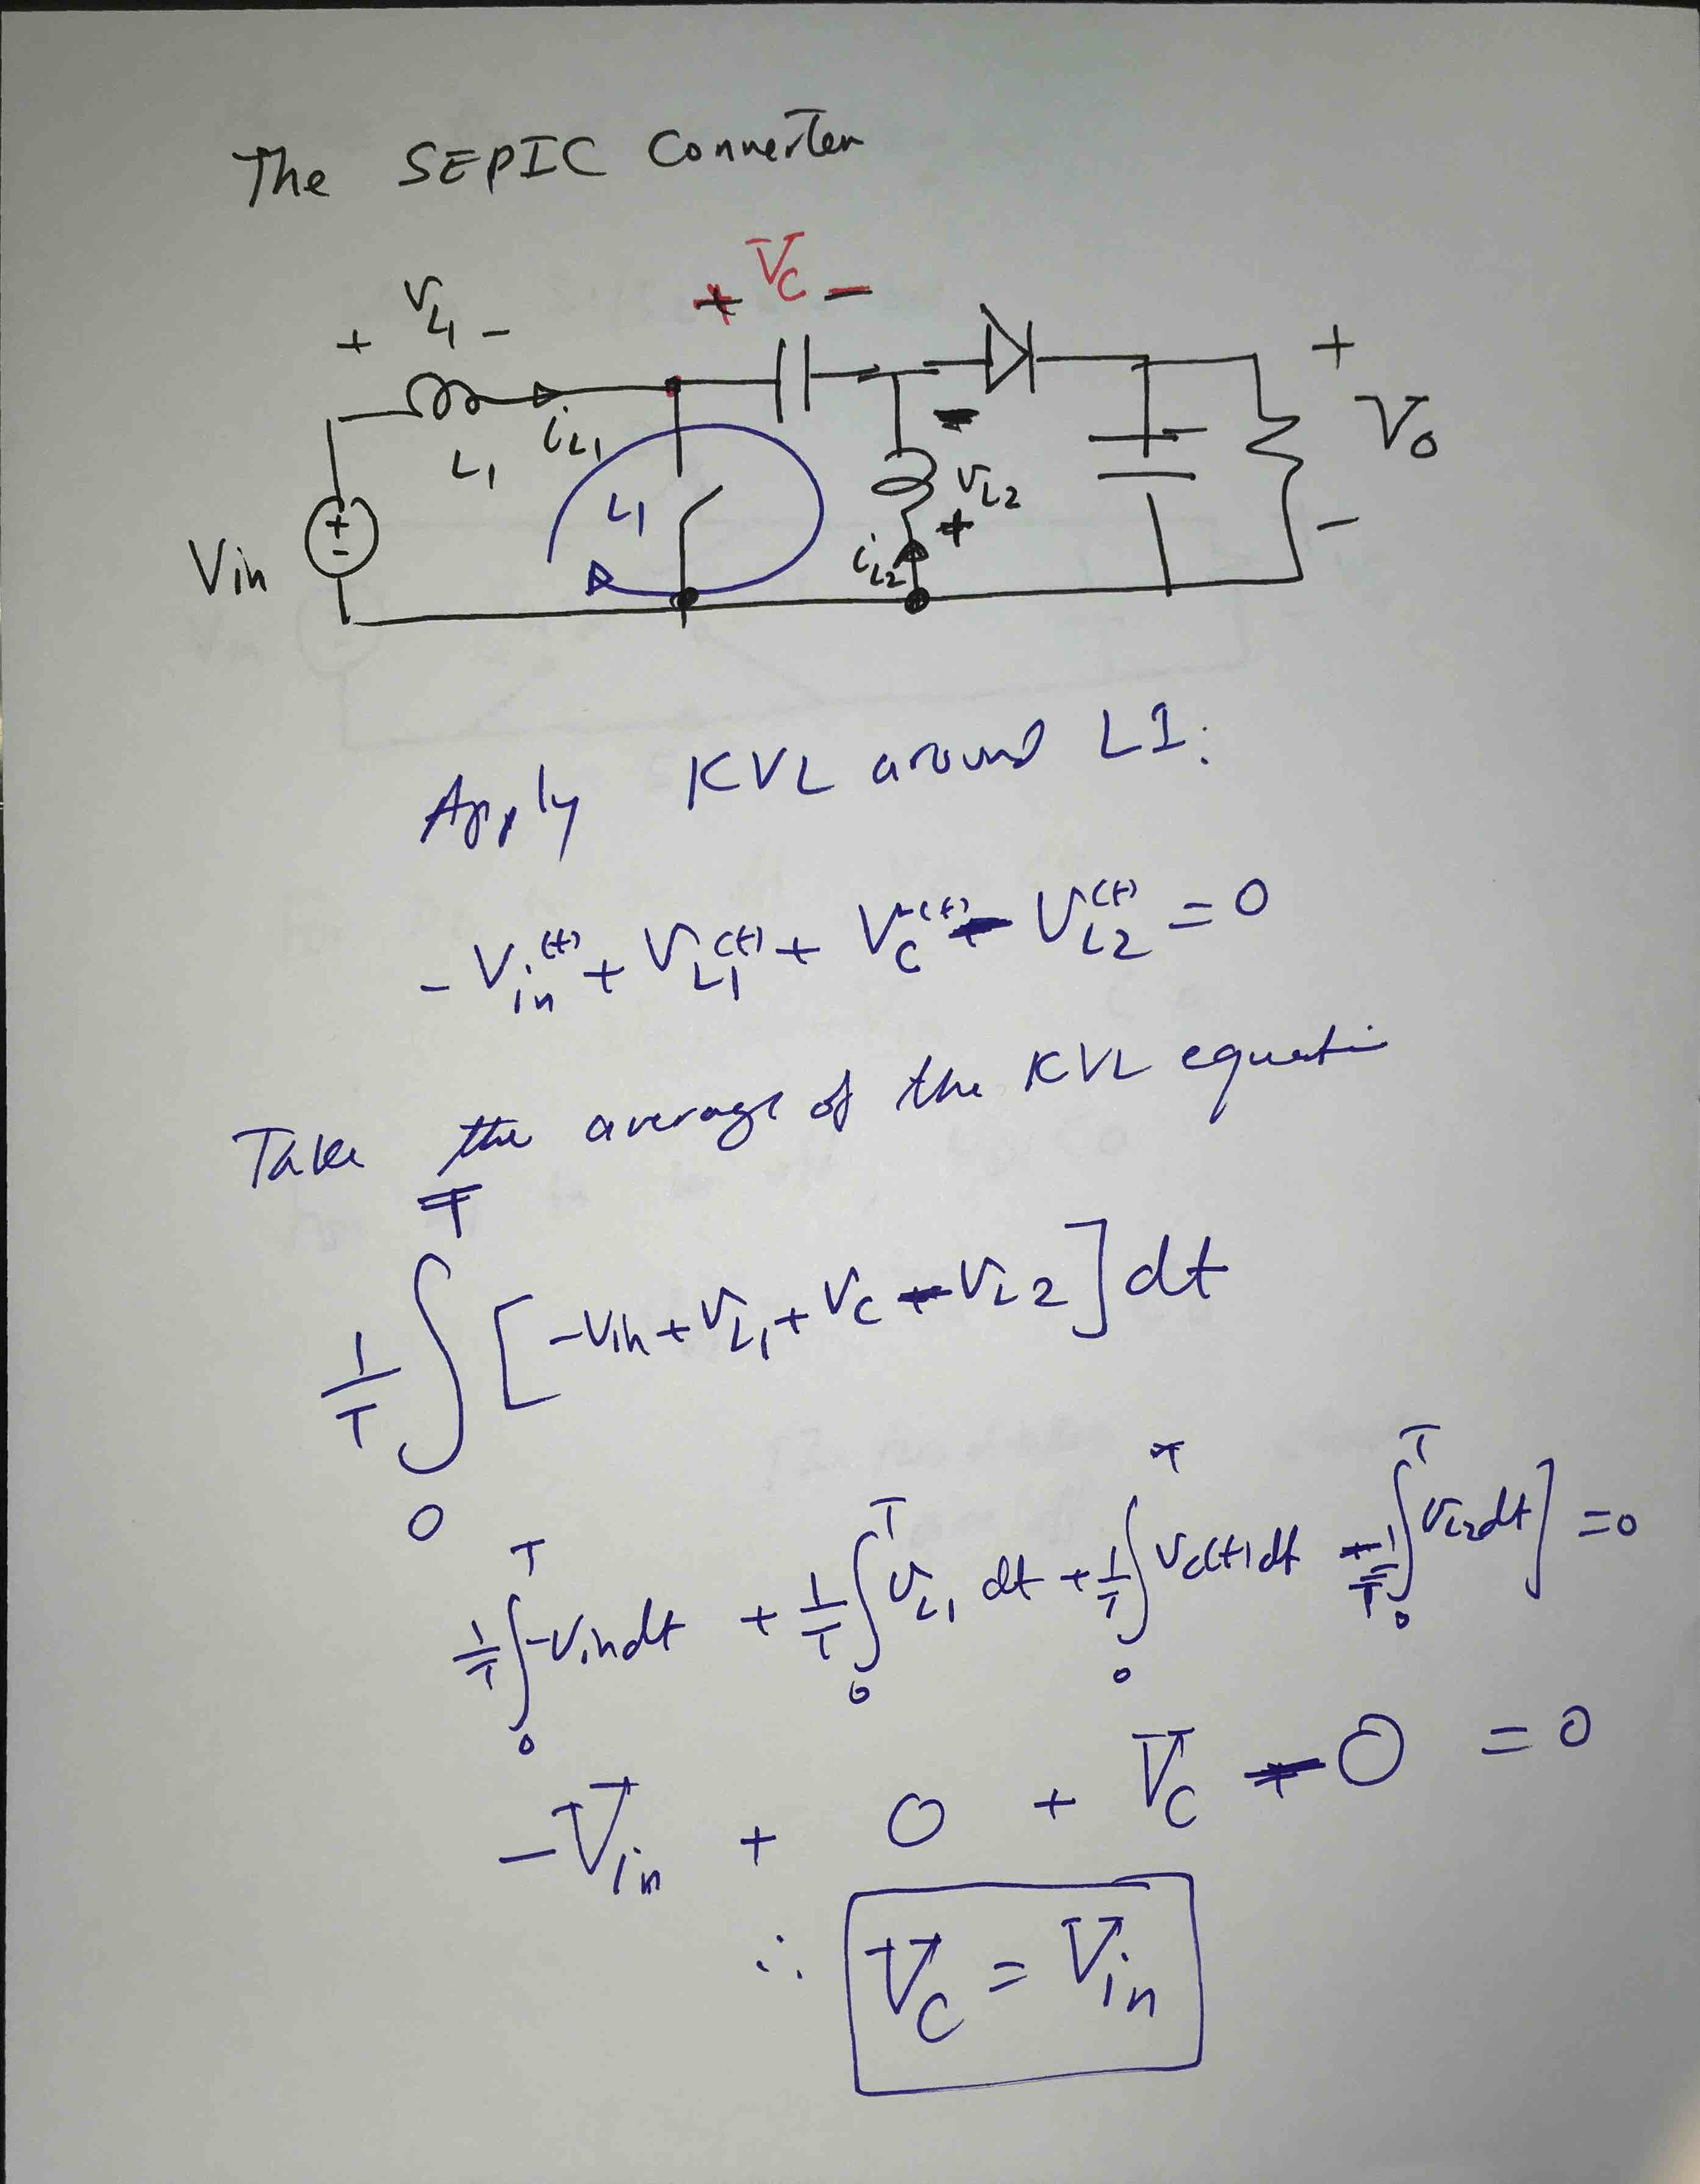 The SEPIC Converter
+ V_C −
+ v_L1 −
L1
i_L1
Vin
+
-
L1
-
v_L2
+
i_L2
+
Vo
−
Apply KVL around L1:
-V_in(t) + V_L1(t) + V_C(t) - V_L2(t) = 0
Take the average of the KVL equati
1/T ∫_0^T [-Vin + V_L1 + V_C - V_L2] dt
1/T ∫_0^T -Vin dt + 1/T ∫_0^T V_L1 dt + 1/T ∫_0^T V_C(t) dt - 1/T ∫_0^T V_L2 dt] = 0
-V_in + 0 + V_C - 0 = 0
∴ V_C = V_in